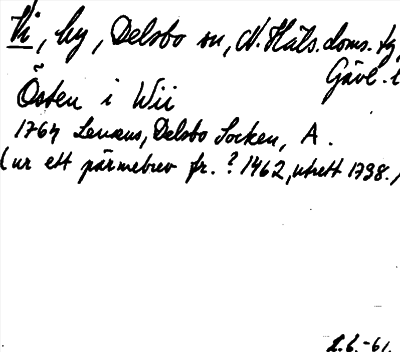 Vi, by, Delsbo sn, N. Häls. doms. tg,
Gävl. l
Östen i Wii
1764 Lenæus, Delsbo Socken, A.
(ur ett pärmebrev fr. ? 1462, utsett 1798.)
2.6.-61.